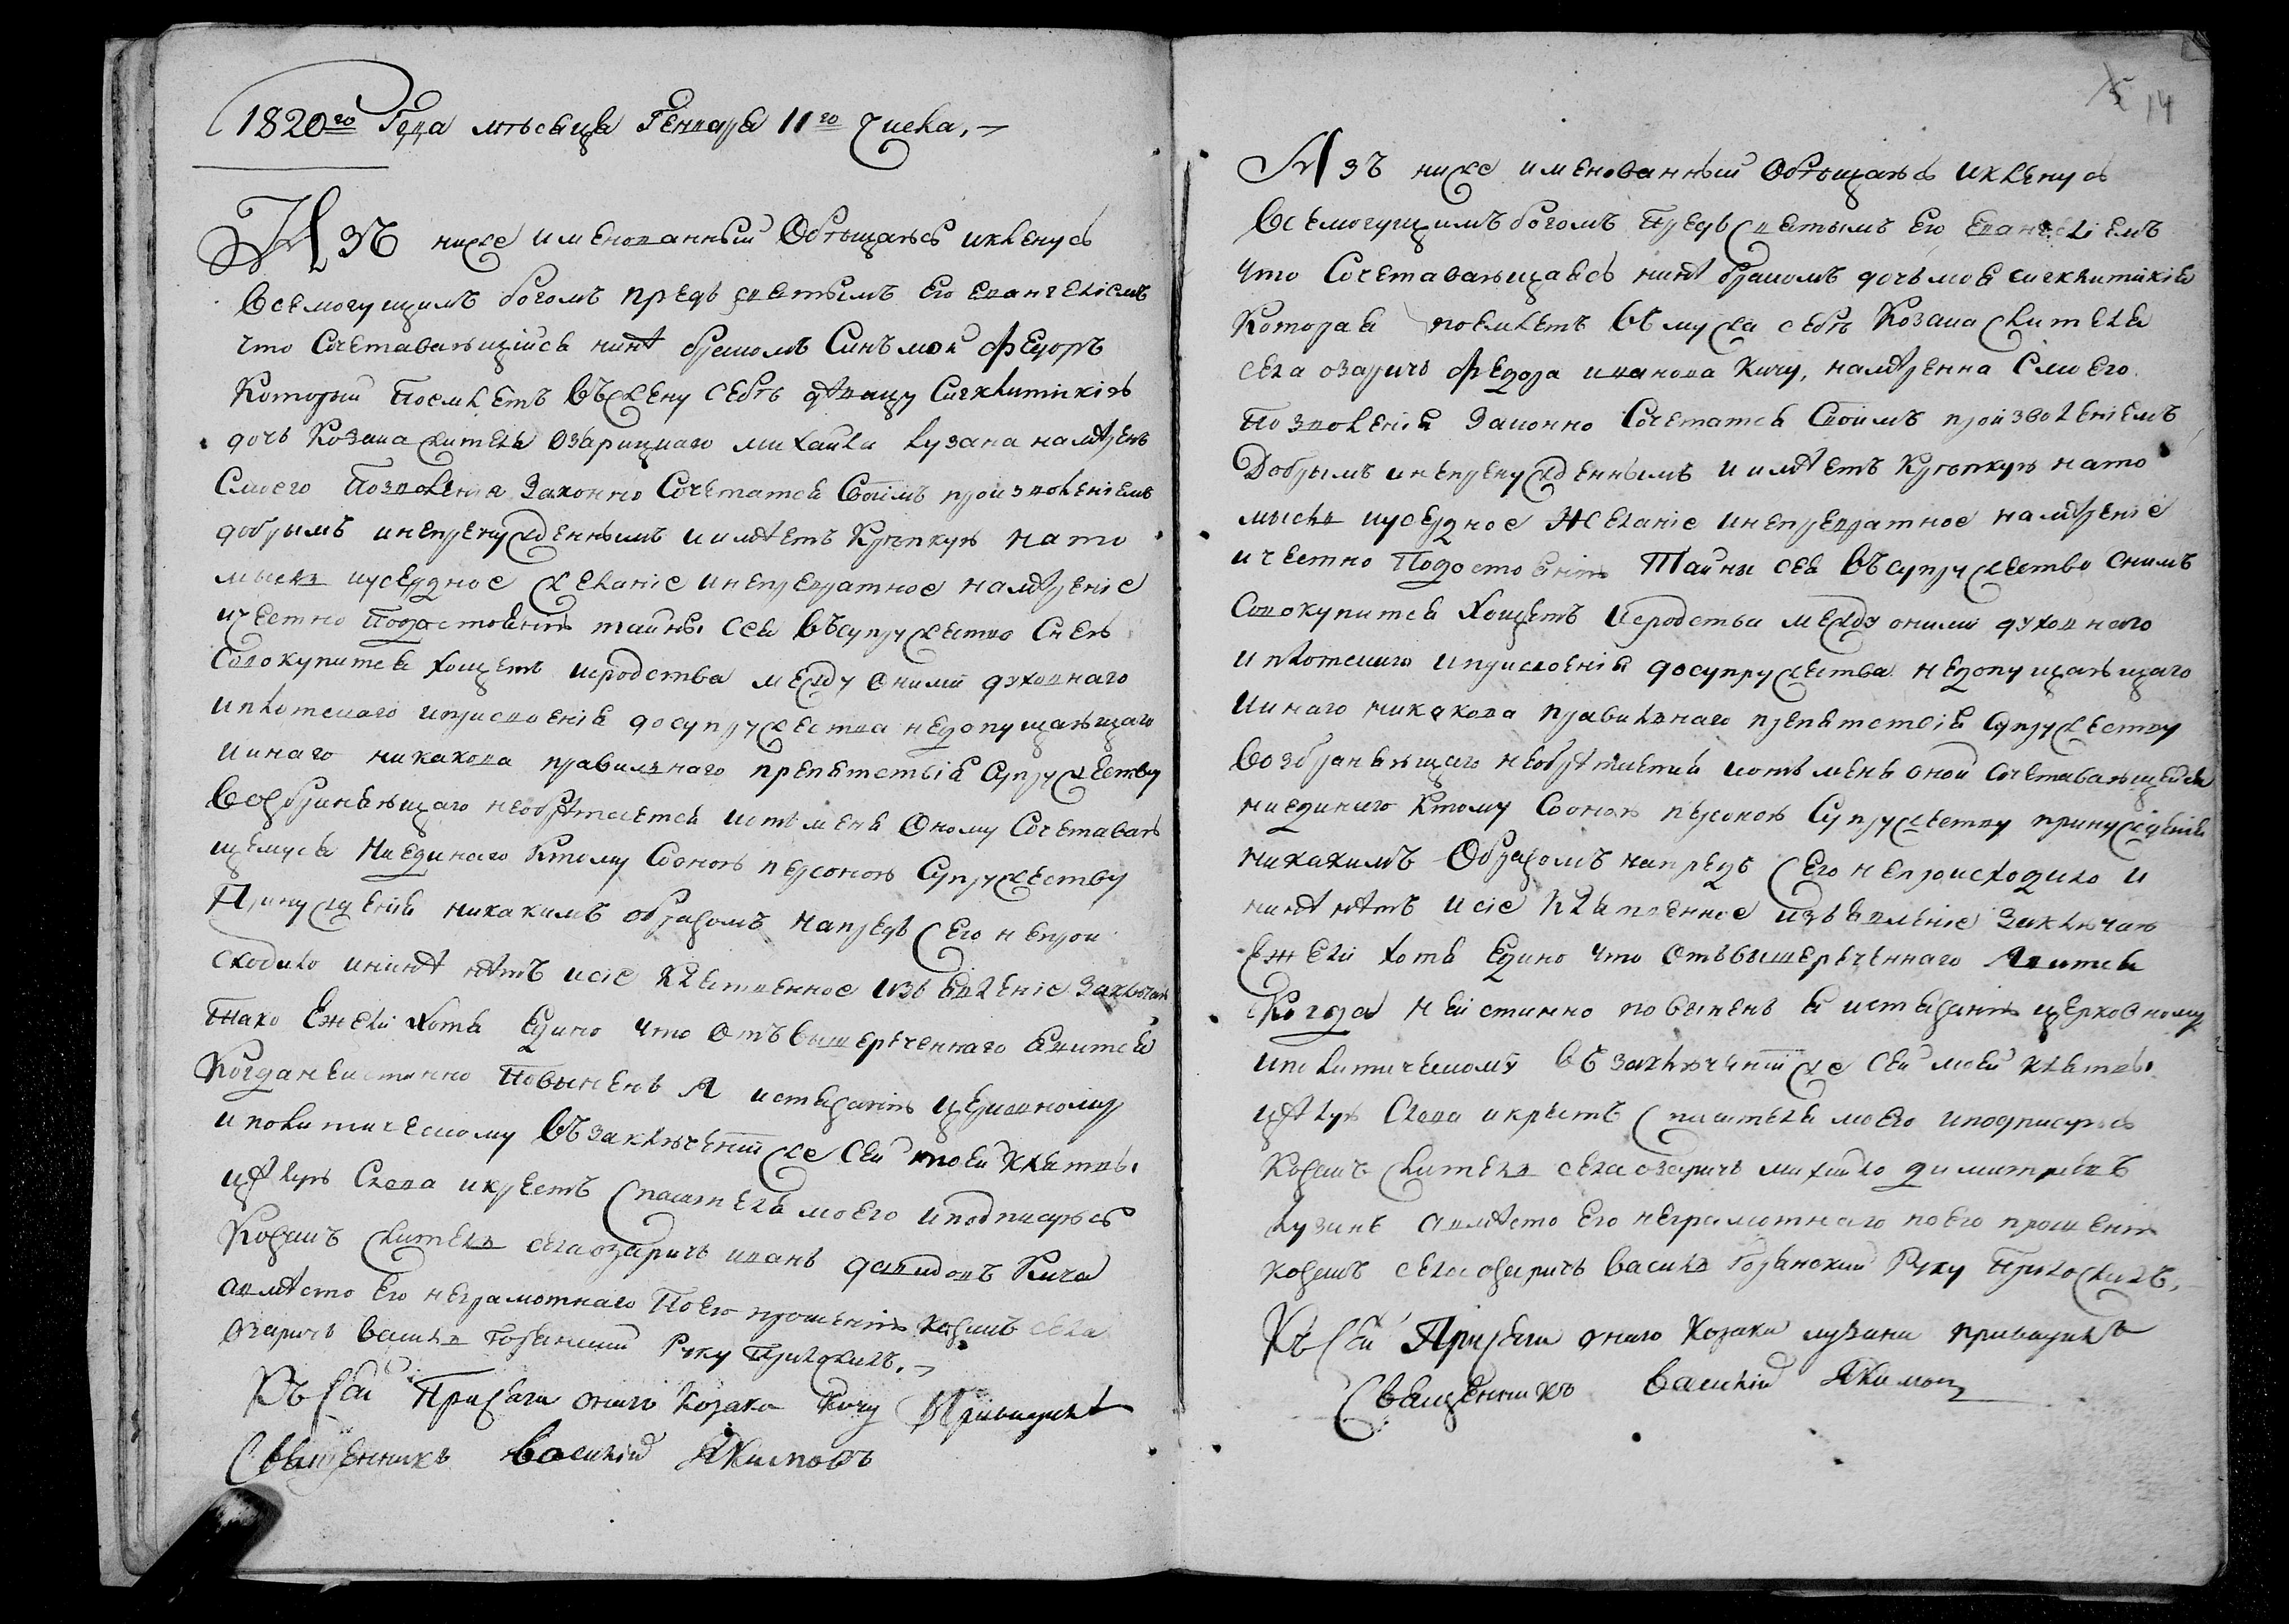 1820го Года мѣсяца Генваря 11го Числа,
Я Азъ ниже именованный Обѣщаюсь иклянусь
Всемогущимъ богомъ предъ святымъ Его Евангеліемъ
что Сочетавающійся нинѣ бракомъ Синъ мой Федоръ
Который поемлетъ въжену себѣ дѣвицу Сигклитикію
дочь Козака жителя Озарицкаго михайла лузана намѣренъ
Смоего позволенія Законно Сочетатся Своімъ произволеніемъ
добрымъ инепренужденнымъ иимѣетъ Крѣпкую нато
мысль иусердное желаніе инепревратное намѣреніе
ичестно Подостоянію тайны сея въсупружество Снею
Совокупится хощетъ исродства между оними духовнаго
иплотскаго иприсвоенія досупружества недопущающаго
ииного никакова правилнаго препятствія Супружеству
возбраняющаго необрѣтается иотъ мене Оному Сочетаваю
щемуся Ниединаго Ктому Соною персоною Супружеству
Принужденія никакимъ образомъ напредъ Сего непрои
сходило ининѣ нѣтъ исіе Клятвенное изъявленіе Заключаю
Тако Ежели хотя Едино что отъ вышереченнаго явится
Когда неистинно Повиненъ я истязанію церковному
иполитическому Въ заключеніи же Сей моей клятвы
цѣлую Слова икрестъ Спасителя моего иподписуюсь
Козакъ житель села озаричъ иванъ давидовъ Кича
авмѣсто Его неграмотнаго Поего прошенію козакъ села
Озаричъ василь горянский Руку Приложилъ.
Къ сей Присяги онаго козака кичу Приводилъ
Священникъ Василій Якимовъ
14
Азъ ниже именованный Обѣщаюсь иклянусь
Всемогущимъ богомъ предъ святымъ Его Евангеліемъ
что Сочетавающаясь нинѣ бракомъ дочь моя сигклитикія
Которая поемлетъ въмужа себѣ Козака жителя
села озаричъ Федора иванова Кичу, намѣренна Смоего
Позволенія Законно Сочетатся Своімъ произволеніемъ
Добрымъ инепренужденнымъ иимѣетъ Крѣпкую нато
мысль иусердное Желаніе инепревратное намѣреніе
ичестно Подостоянію Тайны сея Въсупружество Снимъ
Совокупится Хощетъ исродства между оними духовнаго
иплотскаго иприсвоенія досупружества недопущающаго
ииного никакова правилнаго препятствія Супружеству
возбраняющаго необрѣтается иотъ мене оной сочетавающейся
ниединаго Ктому Соною персоною Супружеству принужденія
никакимъ Образомъ напредъ Сего непроисходило и
нинѣ нѣтъ исіе Клятвенное изъявленіе Заключаю
Ежели хотя Едино что отъвышереченнаго Явится
Когда неистинно повиненъ я истязанію церковному
иполитическому въ заключеніи же Сей моей клятвы
цѣлую Слова икрестъ Спасителя моего иподписуюсь
Козакъ житель села озаричъ михайло димитріевъ
лузанъ авмѣсто Его неграмотнаго поего прошенію
козакъ села озаричъ василь горянский Руку Приложилъ,
Къ сей Присяги онаго Козака лузана приводилъ
Священникъ Василій Якимов